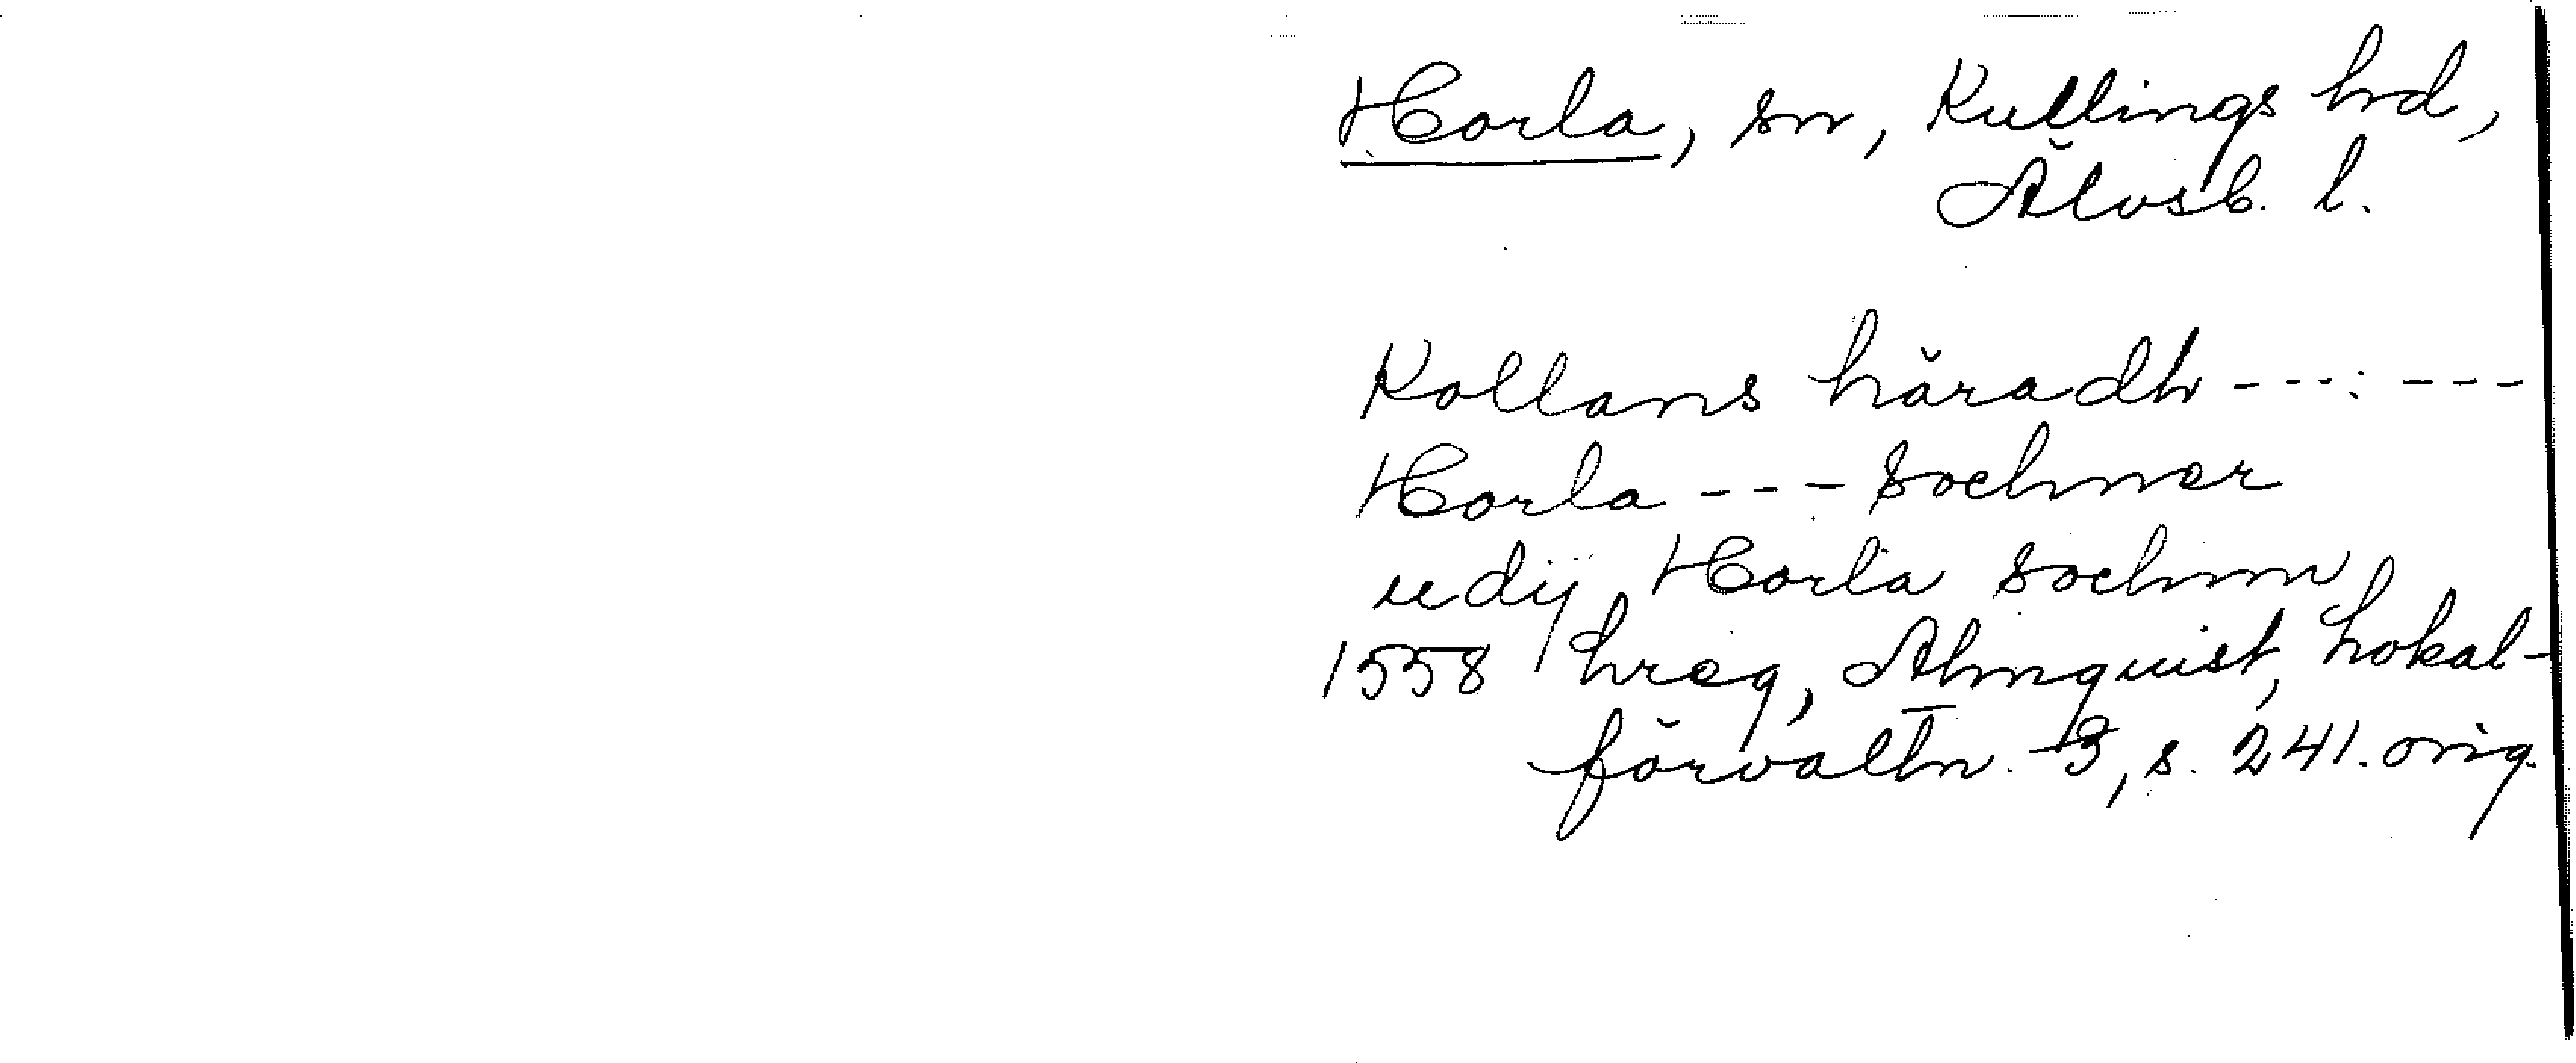 Horla, sn, Kullings hd,
Älvsb. l.
Kollans häradh --- ---
Horla --- Sochner
udij Horla Sochnn
1558 hreg, Almquist, Lokal-
förvaltn. 3, s. 241. orig.